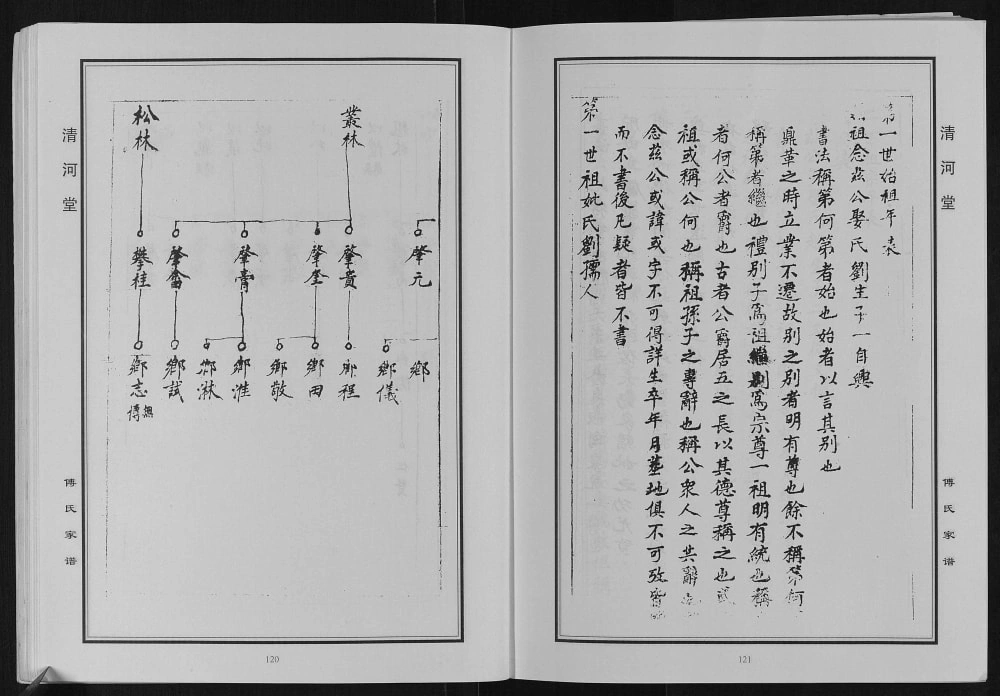 清河堂
傅氏家谱
叢林
松林
肇元
肇貴
肇奎
肇膏
肇畬
攀桂
鄉
鄉儀
鄉程
鄉田
鄉敬
鄉淮
鄉淋
鄉試
鄉志
傅
120
清河堂
傅氏家谱
第一世始祖年表
祖念茲公娶氏劉生子一自興
書法稱第何第者始也始者以言其別也
鼎革之時立業不遷故別之別者明有尊也餘不稱第何
稱第者繼也禮別子爲祖繼別爲宗尊一祖明有統也稱
者何公者爵也古者公爵居五之長以其德尊稱之也或
祖或稱公何也稱祖孫子之專辭也稱公衆人之共辭也
念茲公或諱或字不可得詳生卒年月墓地俱不可攷皆
而不書後凡疑者皆不書
第一世祖妣氏劉孺人
121